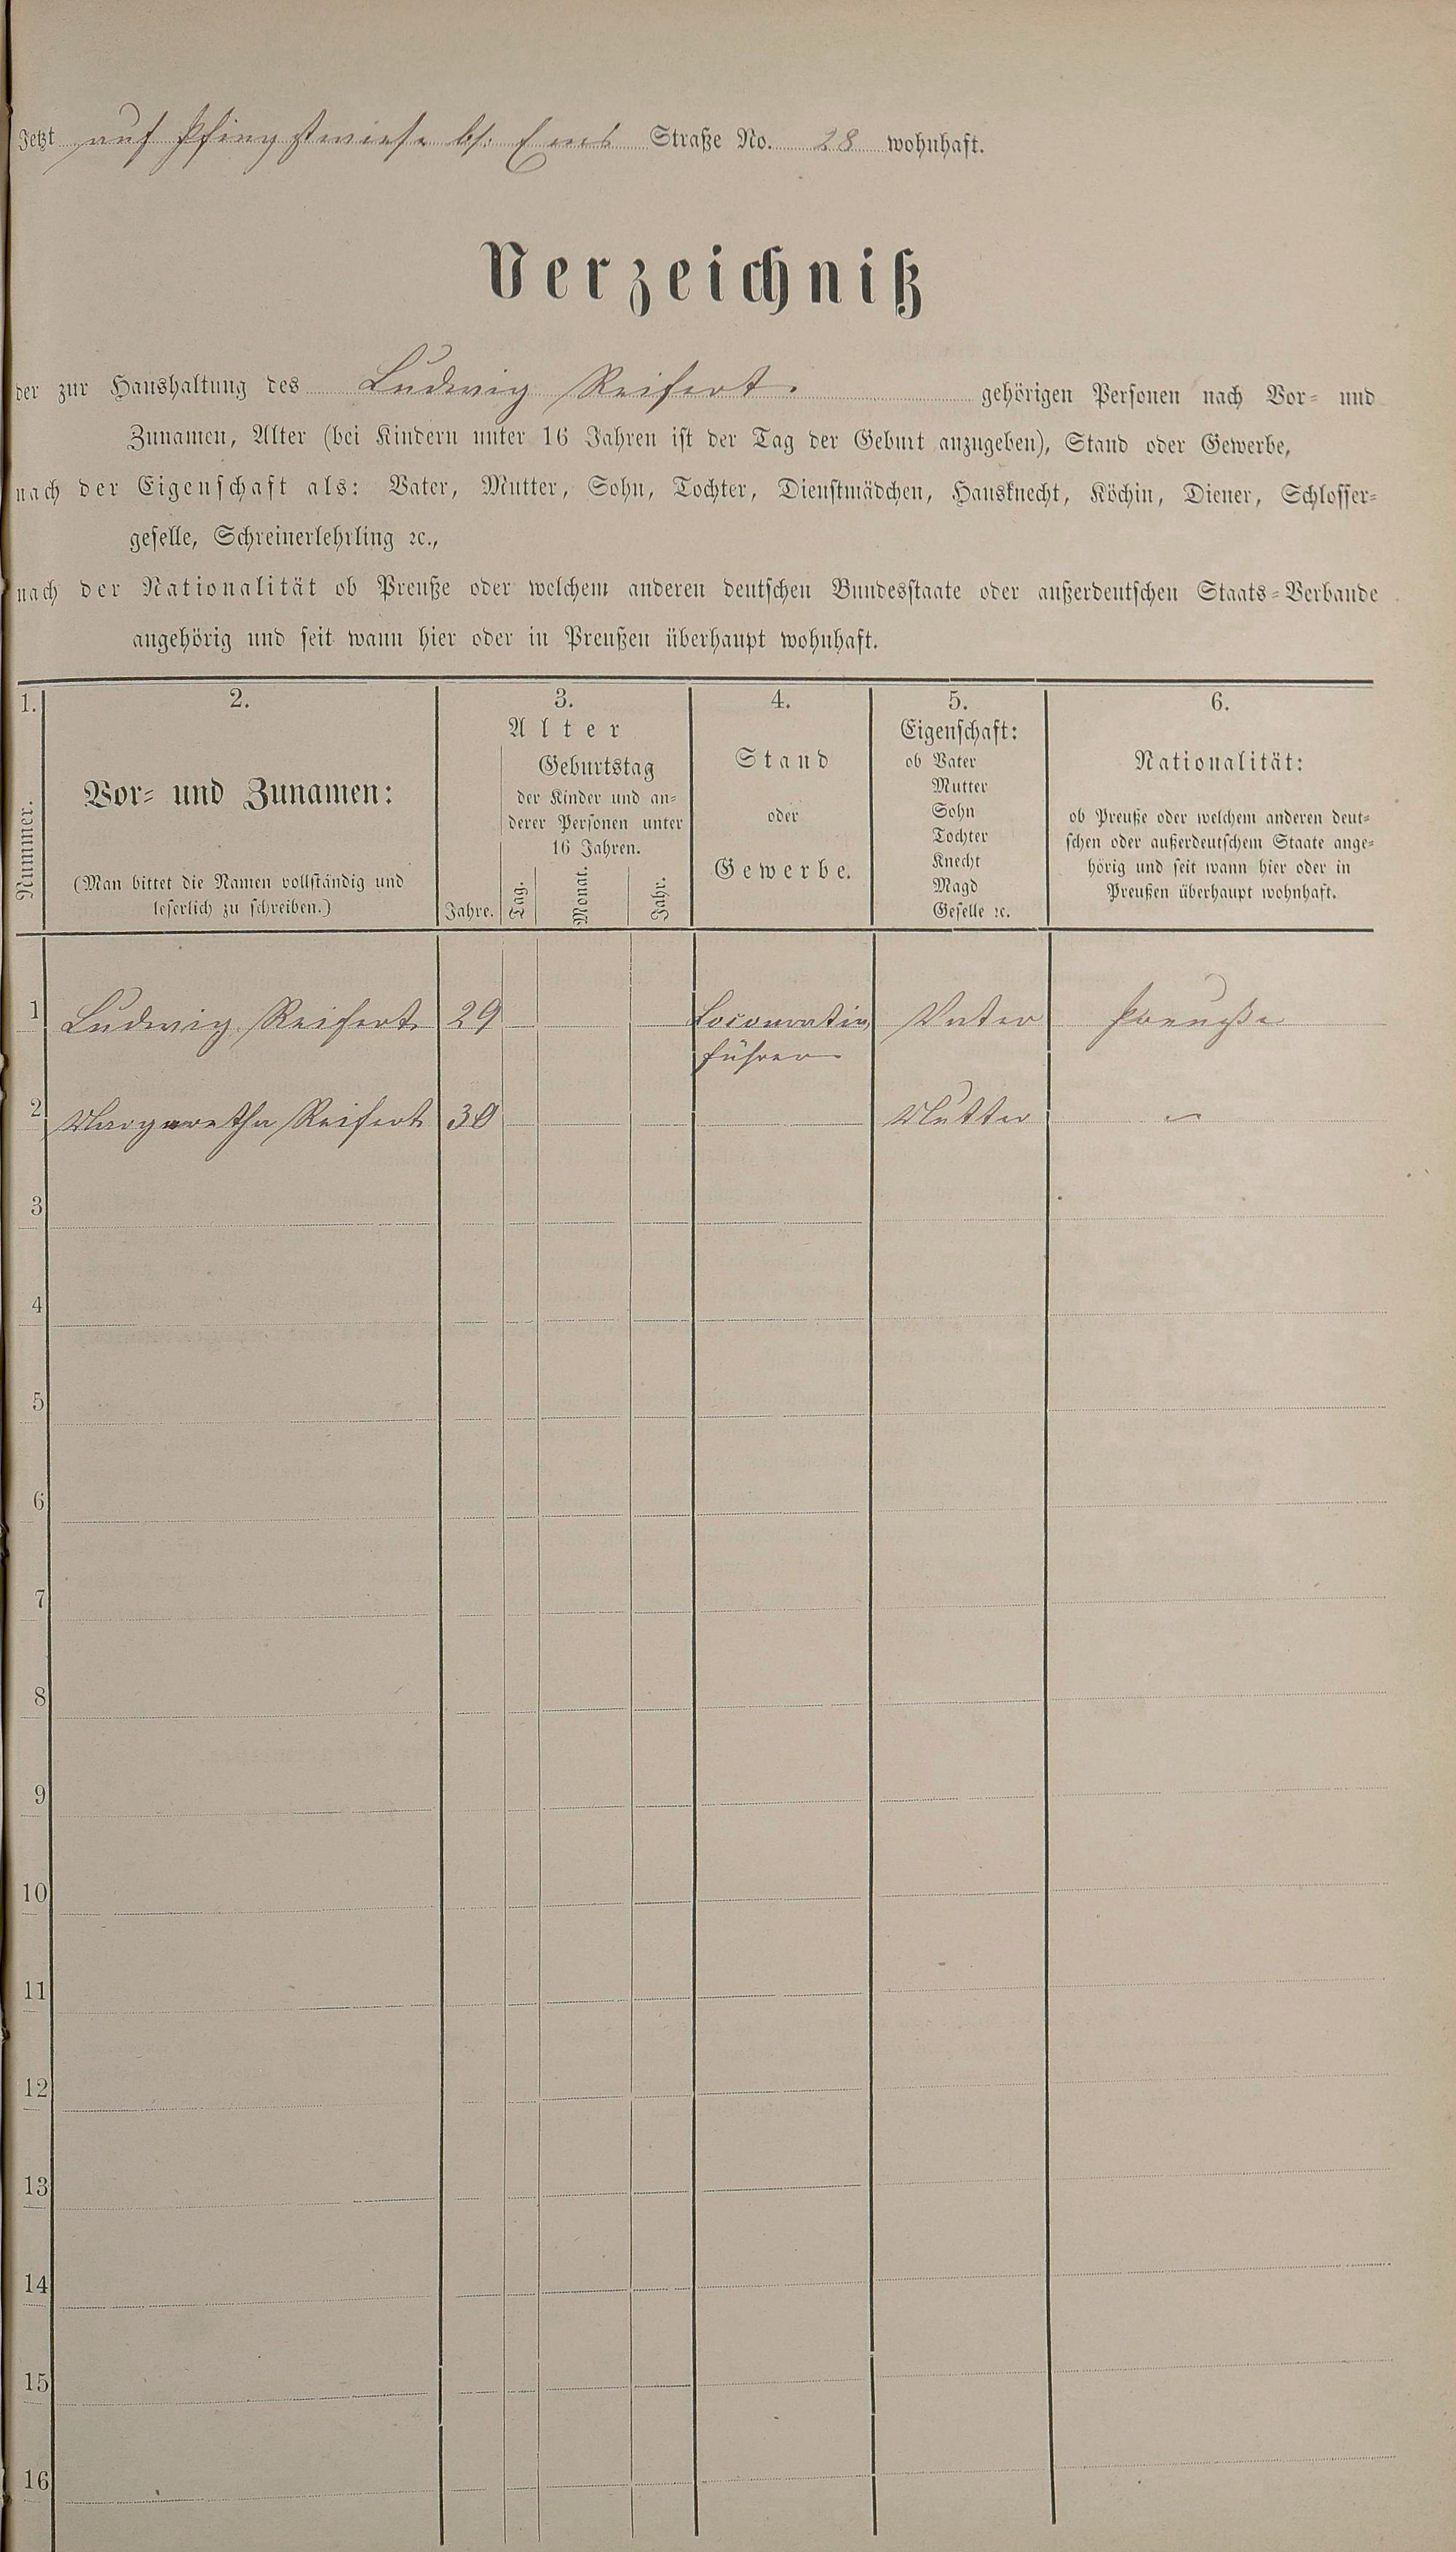 Jetzt auf Pfingstwiese bs. Ems Straße No. 28 wohnhaft.
Verzeichniß
der zur Haushaltung des Ludwig Reifert. gehörigen Personen nach Vor- und
Zunamen, Alter (bei Kindern unter 16 Jahren ist der Tag der Geburt anzugeben), Stand oder Gewerbe,
nach der Eigenschaft als: Vater, Mutter, Sohn, Tochter, Dienstmädchen, Hausknecht, Köchin, Diener, Schlosser-
geselle, Schreinerlehrling ꝛc.,
nach der Nationalität ob Preuße oder welchem anderen deutschen Bundesstaate oder außerdeutschen Staats-Verbande
angehörig und seit wann hier oder in Preußen überhaupt wohnhaft.
1.
Nummer.
2.
Vor- und Zunamen:
(Man bittet die Namen vollständig und
leserlich zu schreiben.)
3.
Alter
Geburtstag
der Kinder und an-
derer Personen unter
16 Jahren.
Jahre. Tag. Monat. Jahr.
4.
Stand
oder
Gewerbe.
5.
Eigenschaft:
ob Vater
Mutter
Sohn
Tochter
Knecht
Magd
Geselle ꝛc.
6.
Nationalität:
ob Preuße oder welchem anderen deut-
schen oder außerdeutschem Staate ange-
hörig und seit wann hier oder in
Preußen überhaupt wohnhaft.
1 Ludwig Reifert 29 Locomotiv Vater Preuße
führer
2 Margaretha Reifert 30 Mutter "
3
4
5
6
7
8
9
10
11
12
13
14
15
16